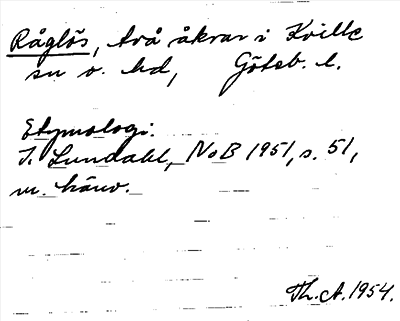 Råglös, två åkrar i Kville
sn o. hd, Göteb. l.
Etymologi:
I. Lundahl, NoB 1951, s. 51,
m. hänv.
Th. A. 1954.